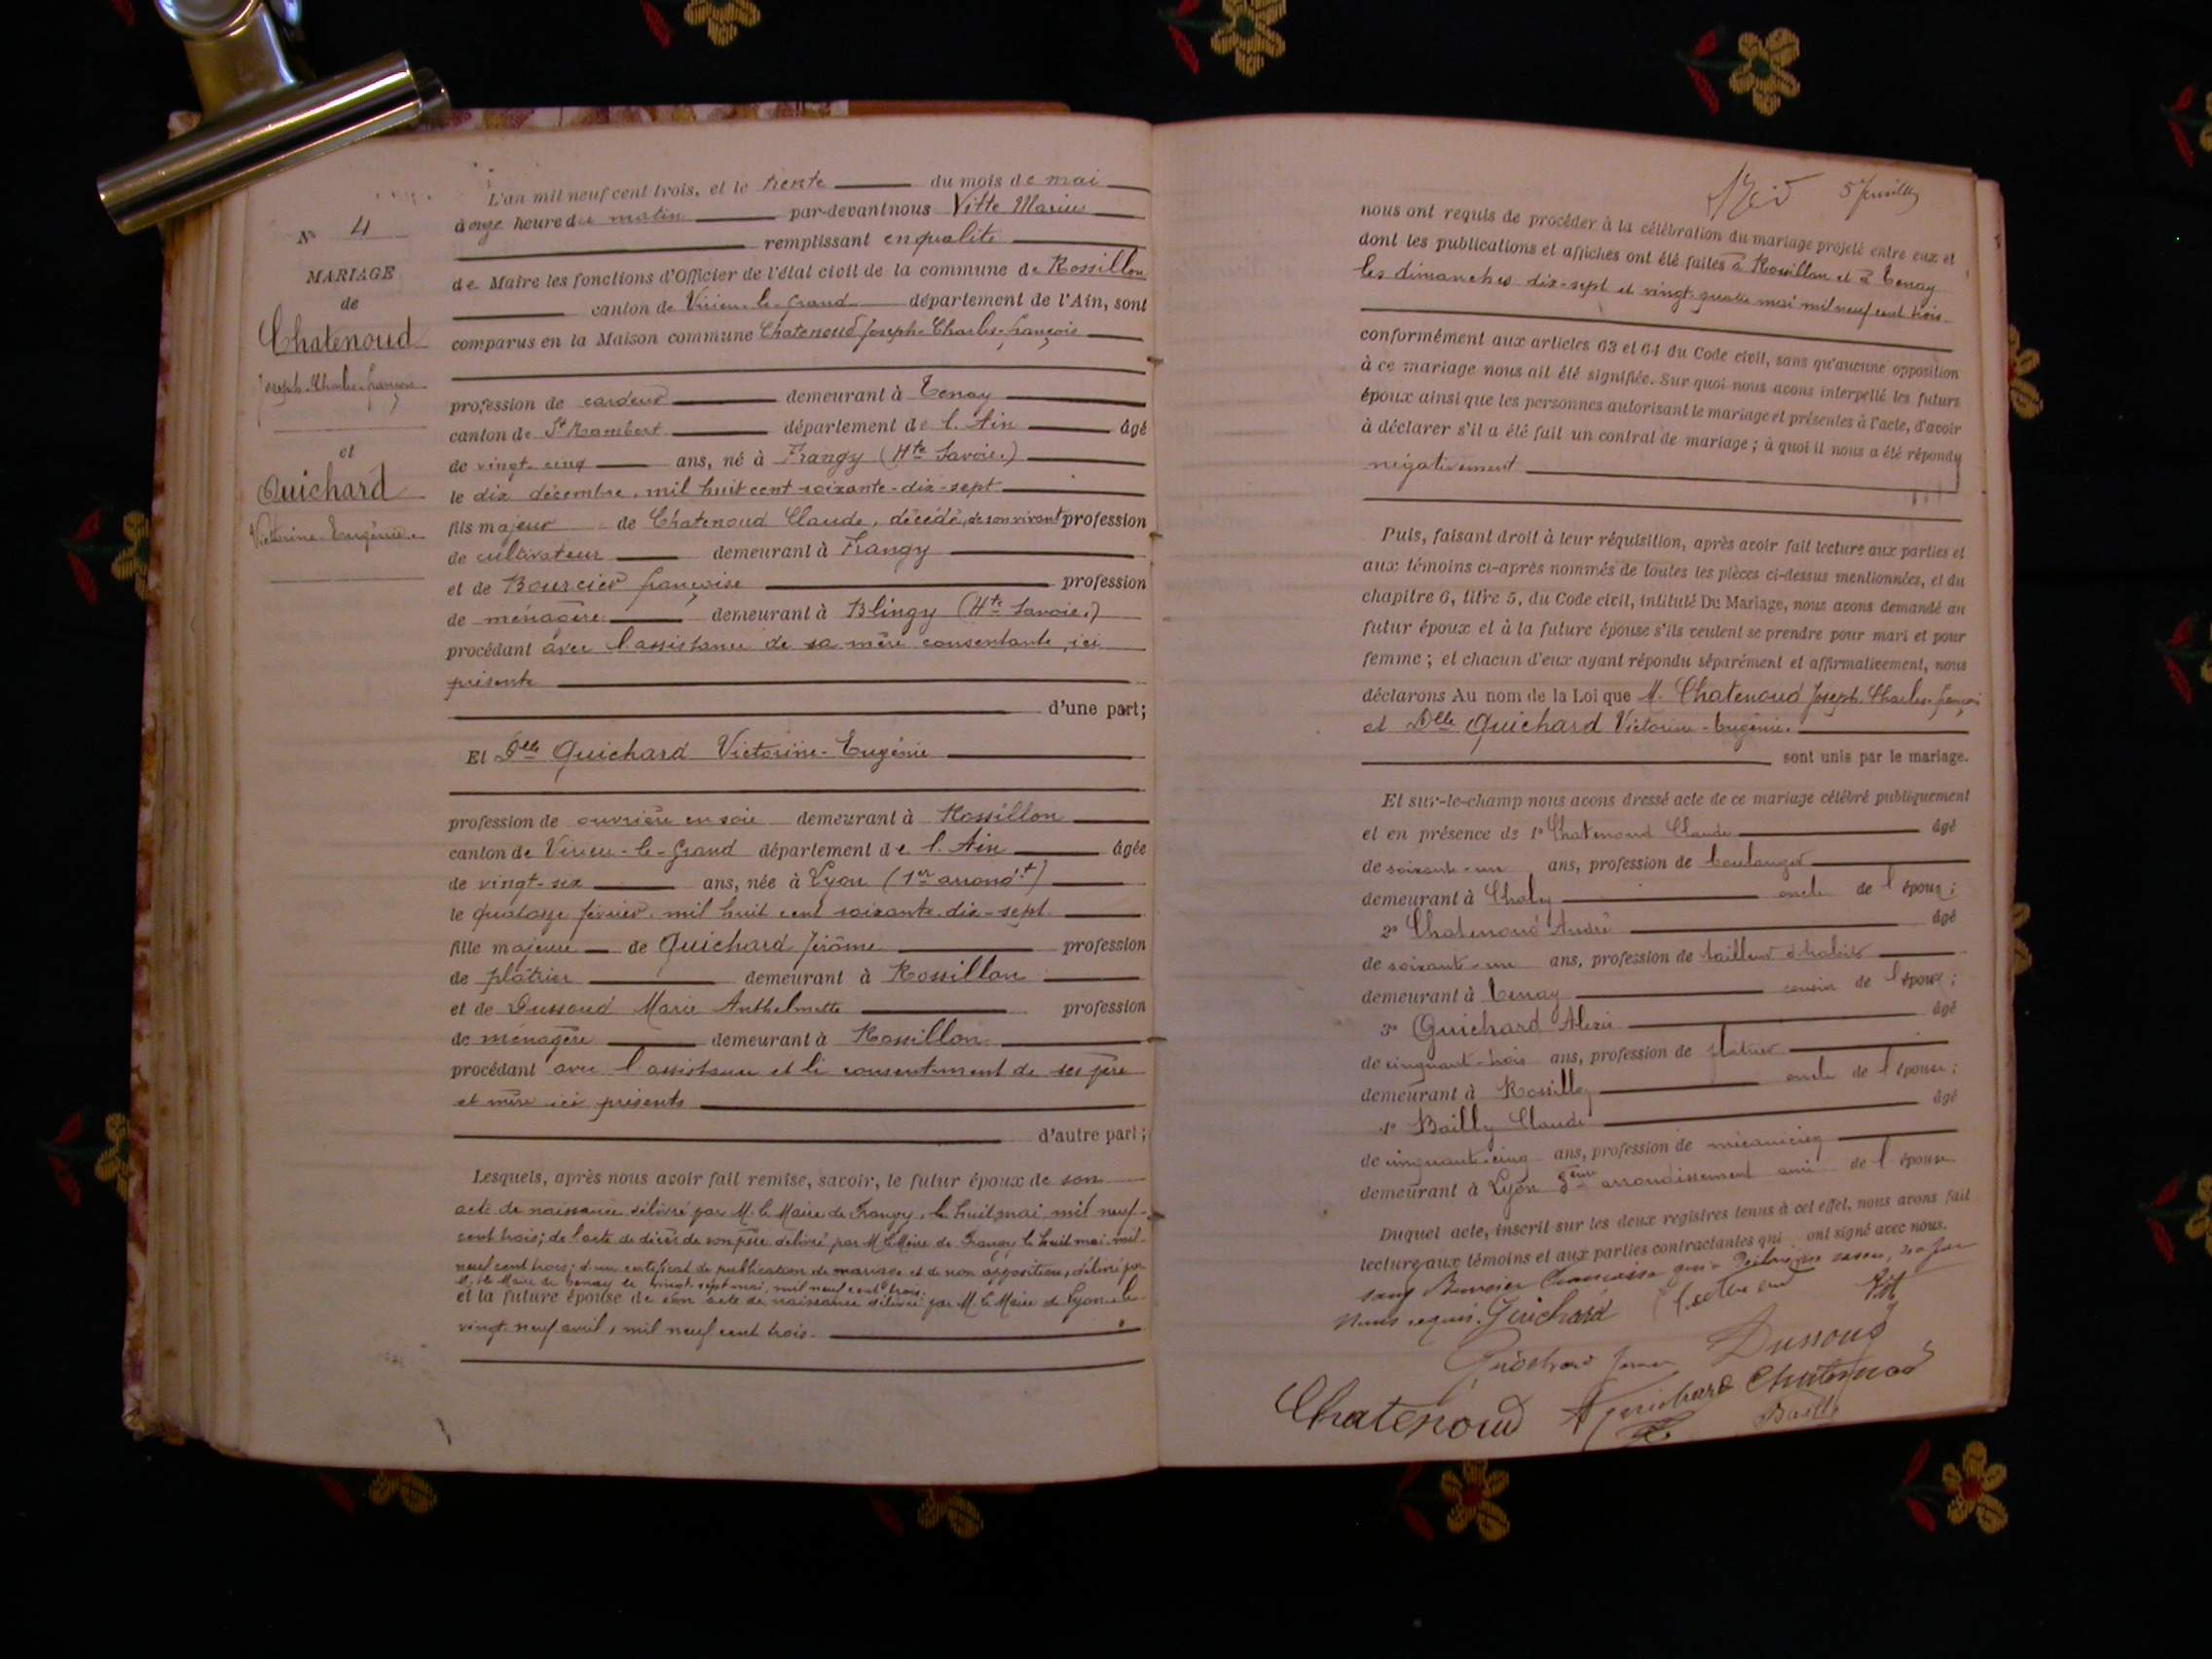 L'an mil neuf cent trois, et le trente du mois de mai
à onze heure du matin par-devant nous Vitte Marius
remplissant en qualité
de Maire les fonctions d'Officier de l'état civil de la commune de Rossillon
canton de Virieu-le-Grand département de l'Ain, sont
comparus en la Maison commune Chatenoud Joseph-Charles-françois
profession de cardeur demeurant à Tenay
canton de St Rambert département de l'Ain âgé
de vingt-cinq ans, né à Frangy (Hte Savoie.)
le dix décembre, mil huit cent soixante-dix-sept
fils majeur de Chatenoud Claude, décédé, de son vivant profession
de cultivateur demeurant à Frangy
et de Bourcier françoise profession
de ménagère demeurant à Blingy (Hte Savoie.)
procédant avec l'assistance de sa mère consentante, ici
présente
d'une part;
Et Dlle Guichard Victorine-Eugénie
profession de ouvrière en soie demeurant à Rossillon
canton de Virieu-le-Grand département de l'Ain âgée
de vingt-six ans, née à Lyon (1er arrondt)
le quatorze février, mil huit cent soixante-dix-sept
fille majeure de Guichard Jérôme profession
de plâtrier demeurant à Rossillon
et de Dussoud Marie Anthelmette profession
de ménagère demeurant à Rossillon
procédant avec l'assistance et le consentement de ses père
et mère ici présents
d'autre part;
Lesquels, après nous avoir fait remise, savoir, le futur époux de son
acte de naissance délivré par M. le Maire de Frangy, le huit mai mil neuf-
cent trois; de l'acte de décès de son père délivré par M. le Maire de Frangy le huit mai mil-
neuf cent trois; d'un certificat de publication de mariage et de non opposition, délivré par
M. le Maire de Tenay le vingt-sept mai, mil neuf cent trois.
et la future épouse de son acte de naissance délivré par M. le Maire de Lyon le
vingt-neuf avril, mil neuf cent trois.
N° 4
MARIAGE
de
Chatenoud
Joseph-Charles-françois
et
Guichard
Victorine-Eugénie.
5 Juillet
nous ont requis de procéder à la célébration du mariage projeté entre eux et
dont les publications et affiches ont été faites à Rossillon et à Tenay
les dimanches dix-sept et vingt-quatre mai mil neuf cent trois
conformément aux articles 63 et 64 du Code civil, sans qu'aucune opposition
à ce mariage nous ait été signifiée. Sur quoi nous avons interpellé les futurs
époux ainsi que les personnes autorisant le mariage et présentes à l'acte, d'avoir
à déclarer s'il a été fait un contrat de mariage; à quoi il nous a été répondu
négativement
Puis, faisant droit à leur réquisition, après avoir fait lecture aux parties et
aux témoins ci-après nommés de toutes les pièces ci-dessus mentionnées, et du
chapitre 6, titre 5, du Code civil, intitulé Du Mariage, nous avons demandé au
futur époux et à la future épouse s'ils veulent se prendre pour mari et pour
femme; et chacun d'eux ayant répondu séparément et affirmativement, nous
déclarons Au nom de la Loi que M. Chatenoud Joseph-Charles-françois
et Dlle Guichard Victorine-Eugénie.
sont unis par le mariage.
Et sur-le-champ nous avons dressé acte de ce mariage célébré publiquement
et en présence de 1° Chatenoud Claude âgé
de soixante-un ans, profession de boulanger
demeurant à Chaley oncle de l'époux;
2° Chatenoud André âgé
de soixante-un ans, profession de tailleur d'habits
demeurant à Tenay cousin de l'époux;
3° Guichard Alexis âgé
de cinquante-trois ans, profession de plâtrier
demeurant à Rossillon oncle de l'épouse;
4° Bailly Claude âgé
de cinquante-cinq ans, profession de mécanicien
demeurant à Lyon arrondissement ami de l'épouse
Duquel acte, inscrit sur les deux registres tenus à cet effet, nous avons fait
lecture aux témoins et aux parties contractantes qui ont signé avec nous.
sauf Bourcier Françoise qui a déclaré ne savoir, de ce
nous requis. Guichard
Dussoud
Chatenoud Guichard Chatenoud
Bailly